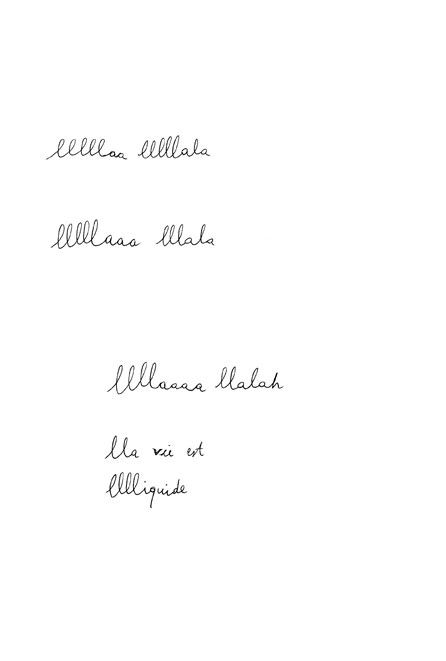 lllllaa lllllala
lllllaaa lllala
llllaaaa llalah
lla vie est
llllliquide